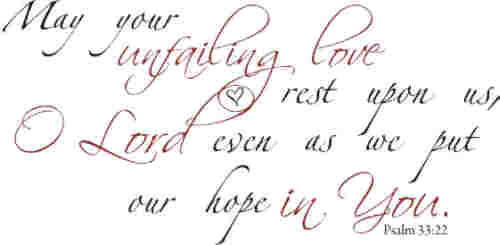 May your
unfailing love
rest upon us,
O Lord even as we put
our hope in You.
Psalm 33:22